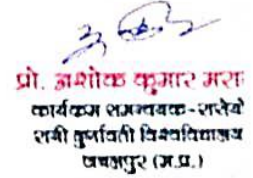 प्रो. अशोक कुमार मरा
कार्यक्रम समन्वयक-रासेयो
रानी दुर्गावती विश्वविद्यालय
जबलपुर (म.प्र.)